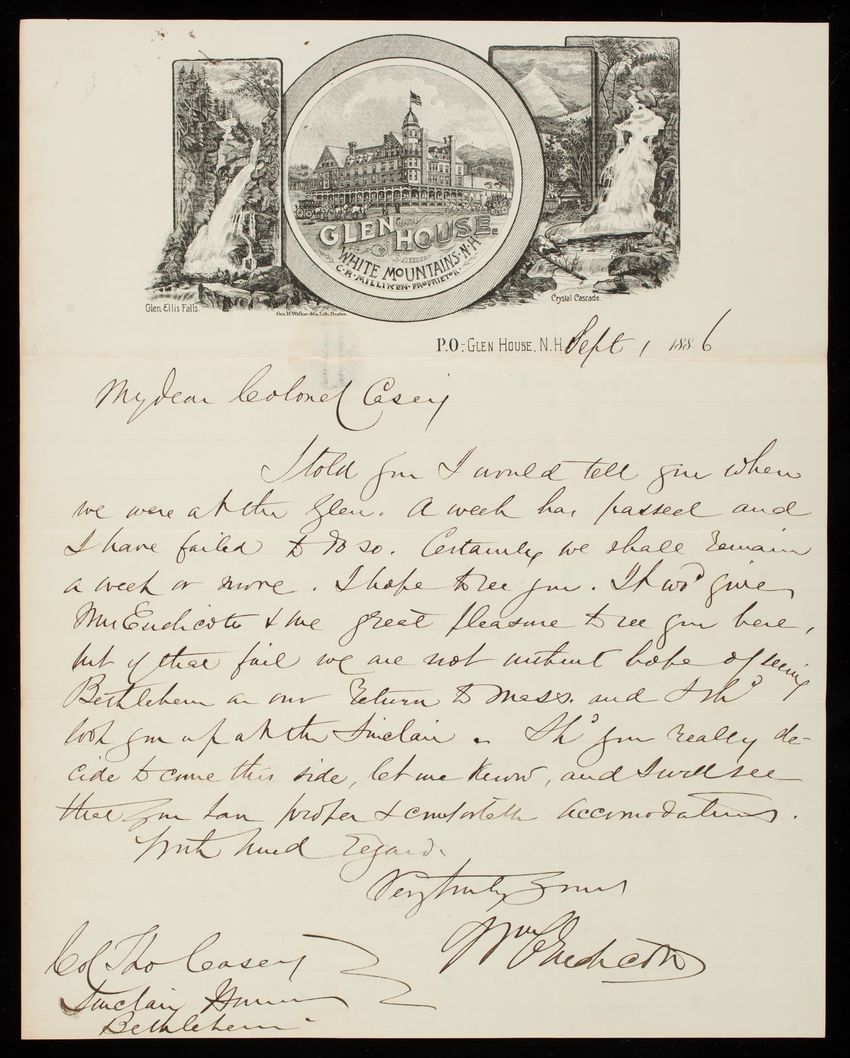 GLEN HOUSE.
WHITE MOUNTAINS. N.H.
C.R. MILLIKEN. PROPRIETOR.
Glen Ellis Falls.
Geo. H. Walker Lith. Boston.
Crystal Cascade.
P.O:- GLEN HOUSE, N.H. Sept 1, 1886
My dear Colonel Casey
I told you I would tell you when
we were at the Glen. A week has passed and
I have failed to do so. Certainly we shall remain
a week or more. I hope to see you. It wd give
Mrs Endicott & me great pleasure to see you here,
but if that fail we are not without hope of seeing
Bethlehem on our return to Mass. and I shd
look you up at the Sinclair. Shd you really de-
cide to come this side, let me know, and I will see
that you have proper & comfortable accomodations.
With kind regards
Very truly yours
Wm Endicott
Col Tho Casey
Sinclair House
Bethlehem